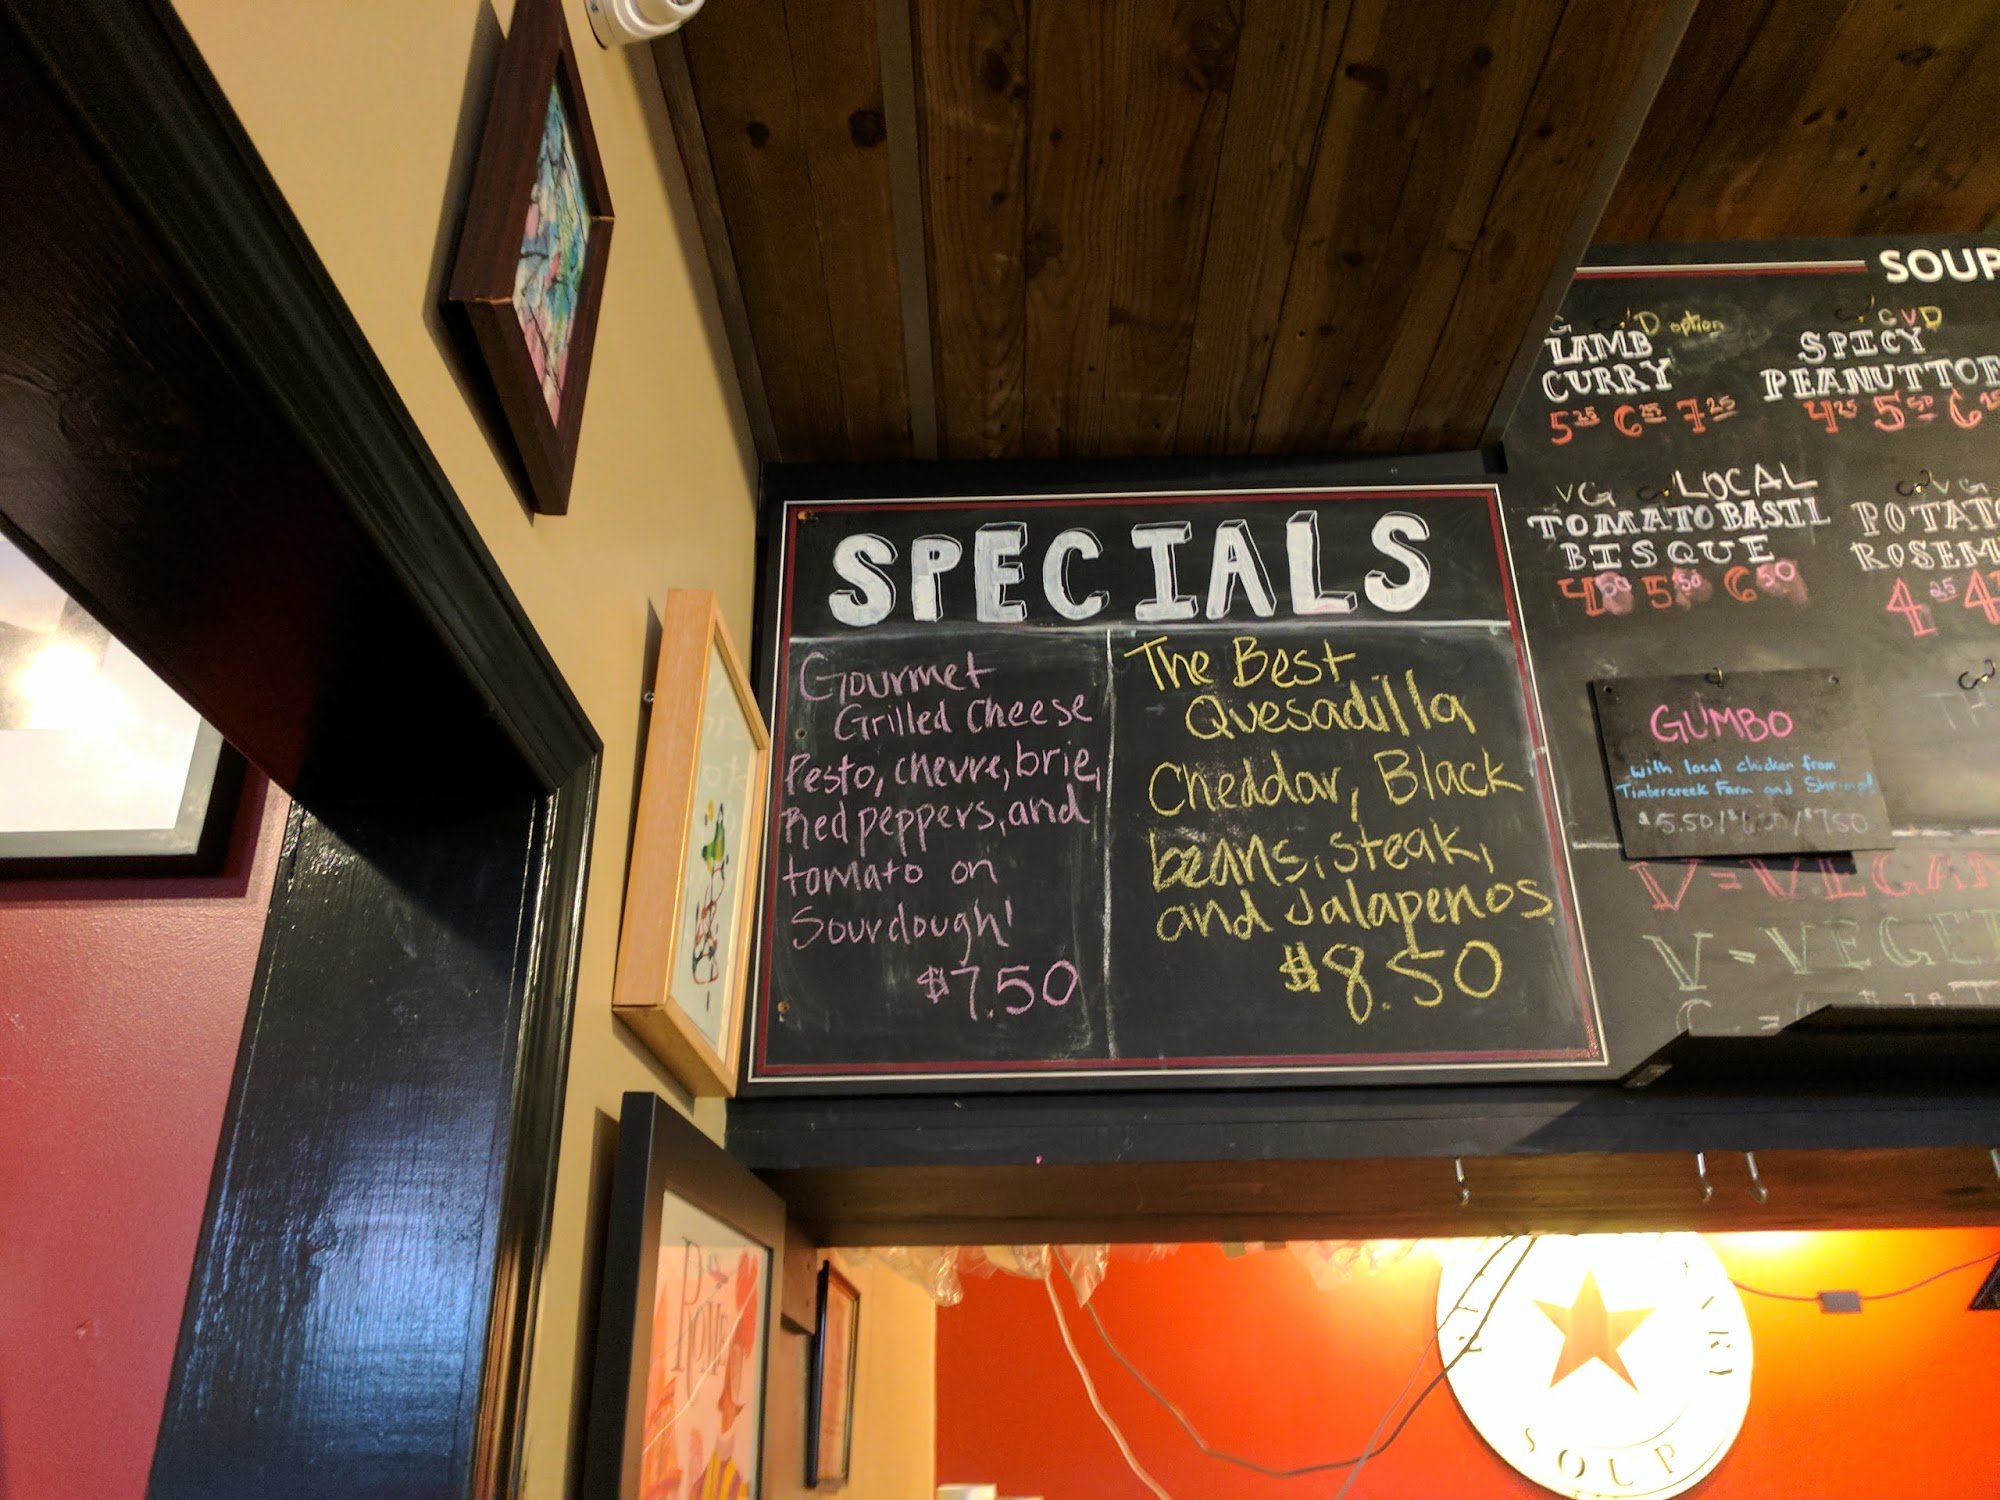 SPECIALS
Gourmet
Grilled Cheese
Pesto, chevre, brie,
Red peppers, and
tomato on
Sourdough!
$7.50
The Best
Quesadilla
Cheddar, Black
beans, steak,
and Jalapenos
$8.50
SOUP
G D option
LAMB
CURRY
5 25 6 25 7 25
GVD
SPICY
PEANUT TOF
4 25 5 50 6
VG LOCAL
TOMATO BASIL
BISQUE
4 50 5 50 6 50
VG
POTATO
ROSEM
4 25 4
GUMBO
with local chicken from
Timbercreek Farm and Shrimp!
$5.50/$6.50/$7.50
V=VEGAN
V=VEGET
SOUP